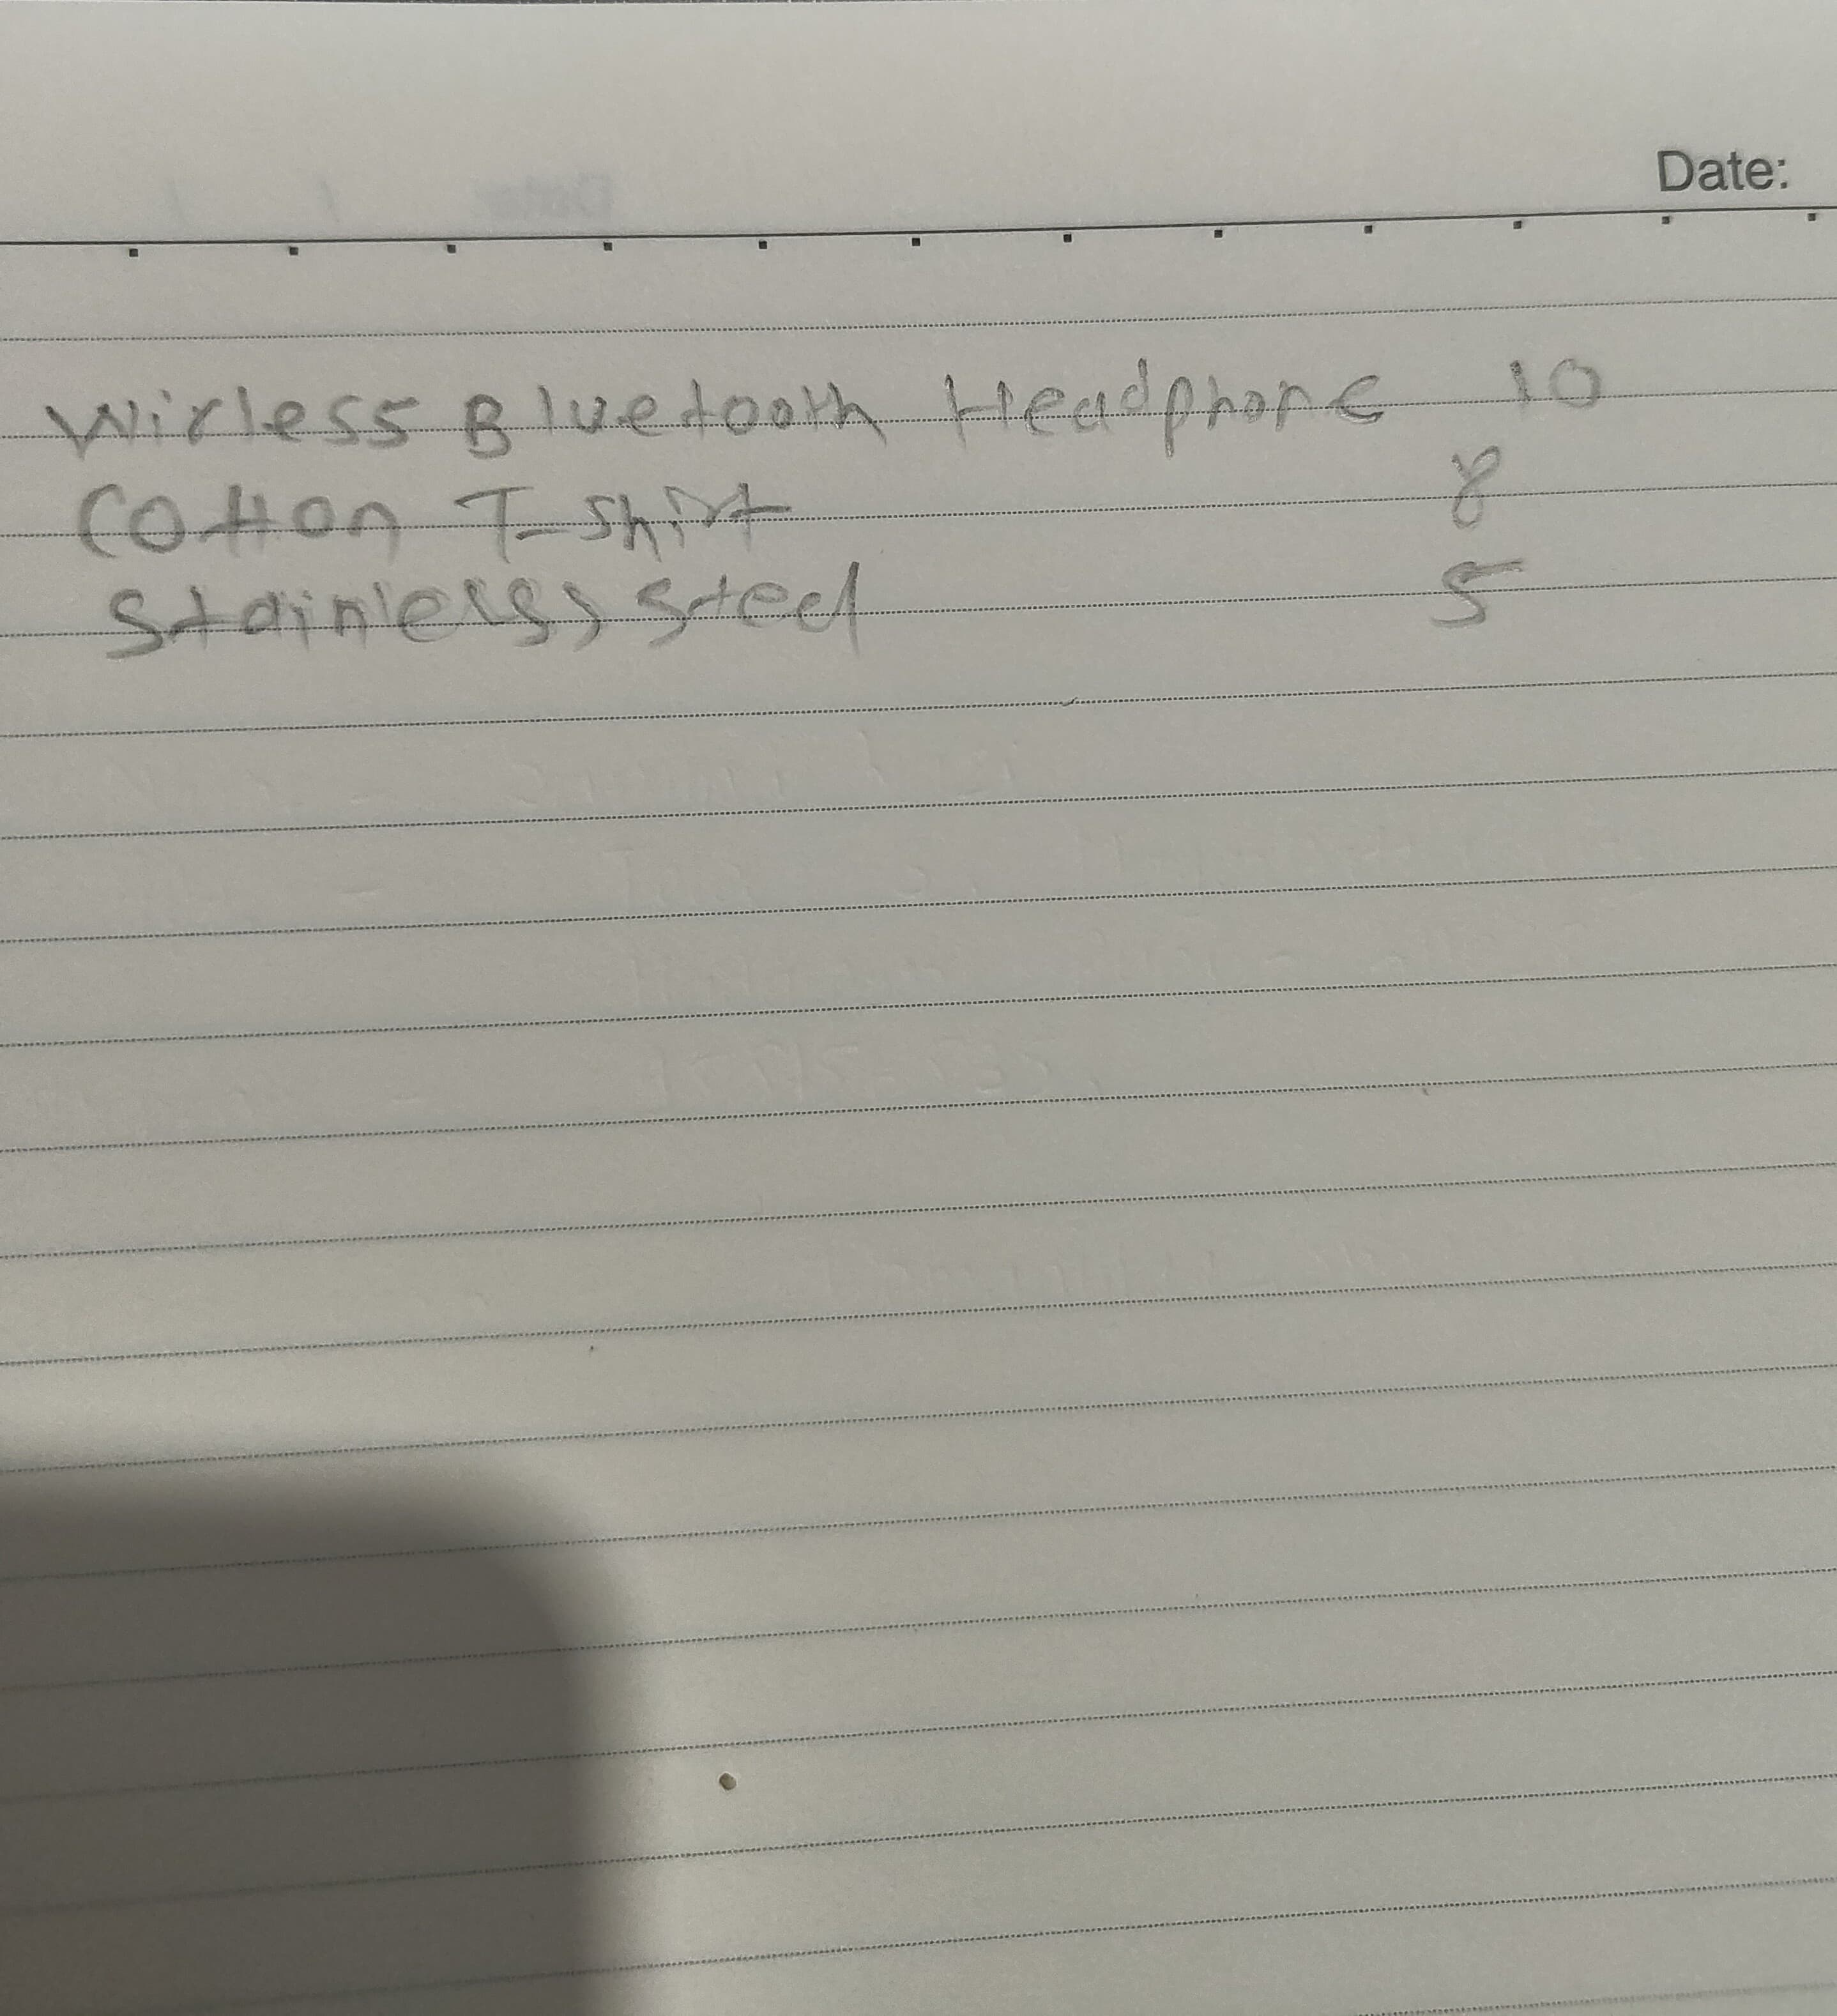 Date:
Wirless Bluetooth Headphone 10
Cotton T-shirt 8
Stainless steel 5